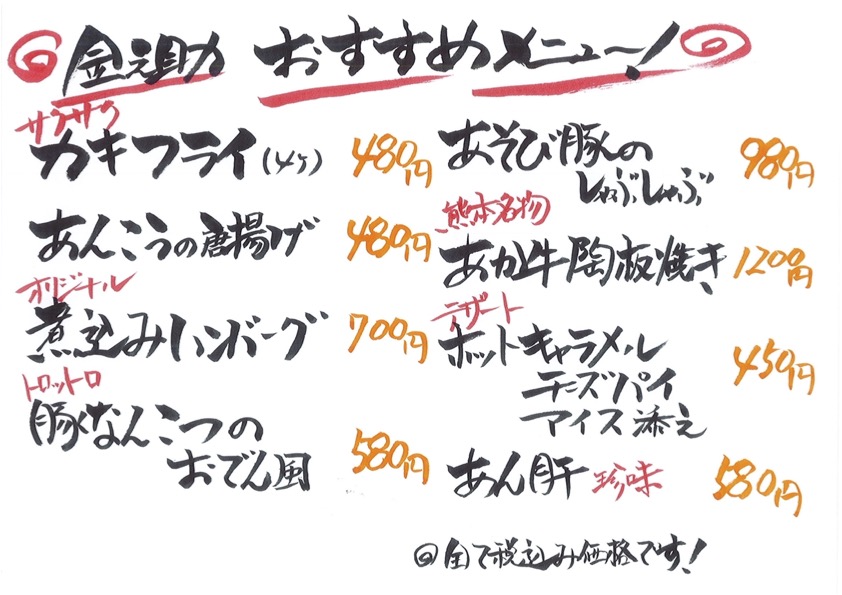 金太助 おすすめメニュー!
サクサク
カキフライ(4ヶ) 480円
あんこうの唐揚げ 480円
オリジナル
煮込みハンバーグ 700円
トロットロ
豚なんこつの
おでん風 580円
あそび豚の
しゃぶしゃぶ 980円
熊本名物
あか牛陶板焼き 1200円
デザート
ホットキャラメル
チーズパイ
アイス添え 450円
あん肝 珍味 580円
◎全て税込み価格です!